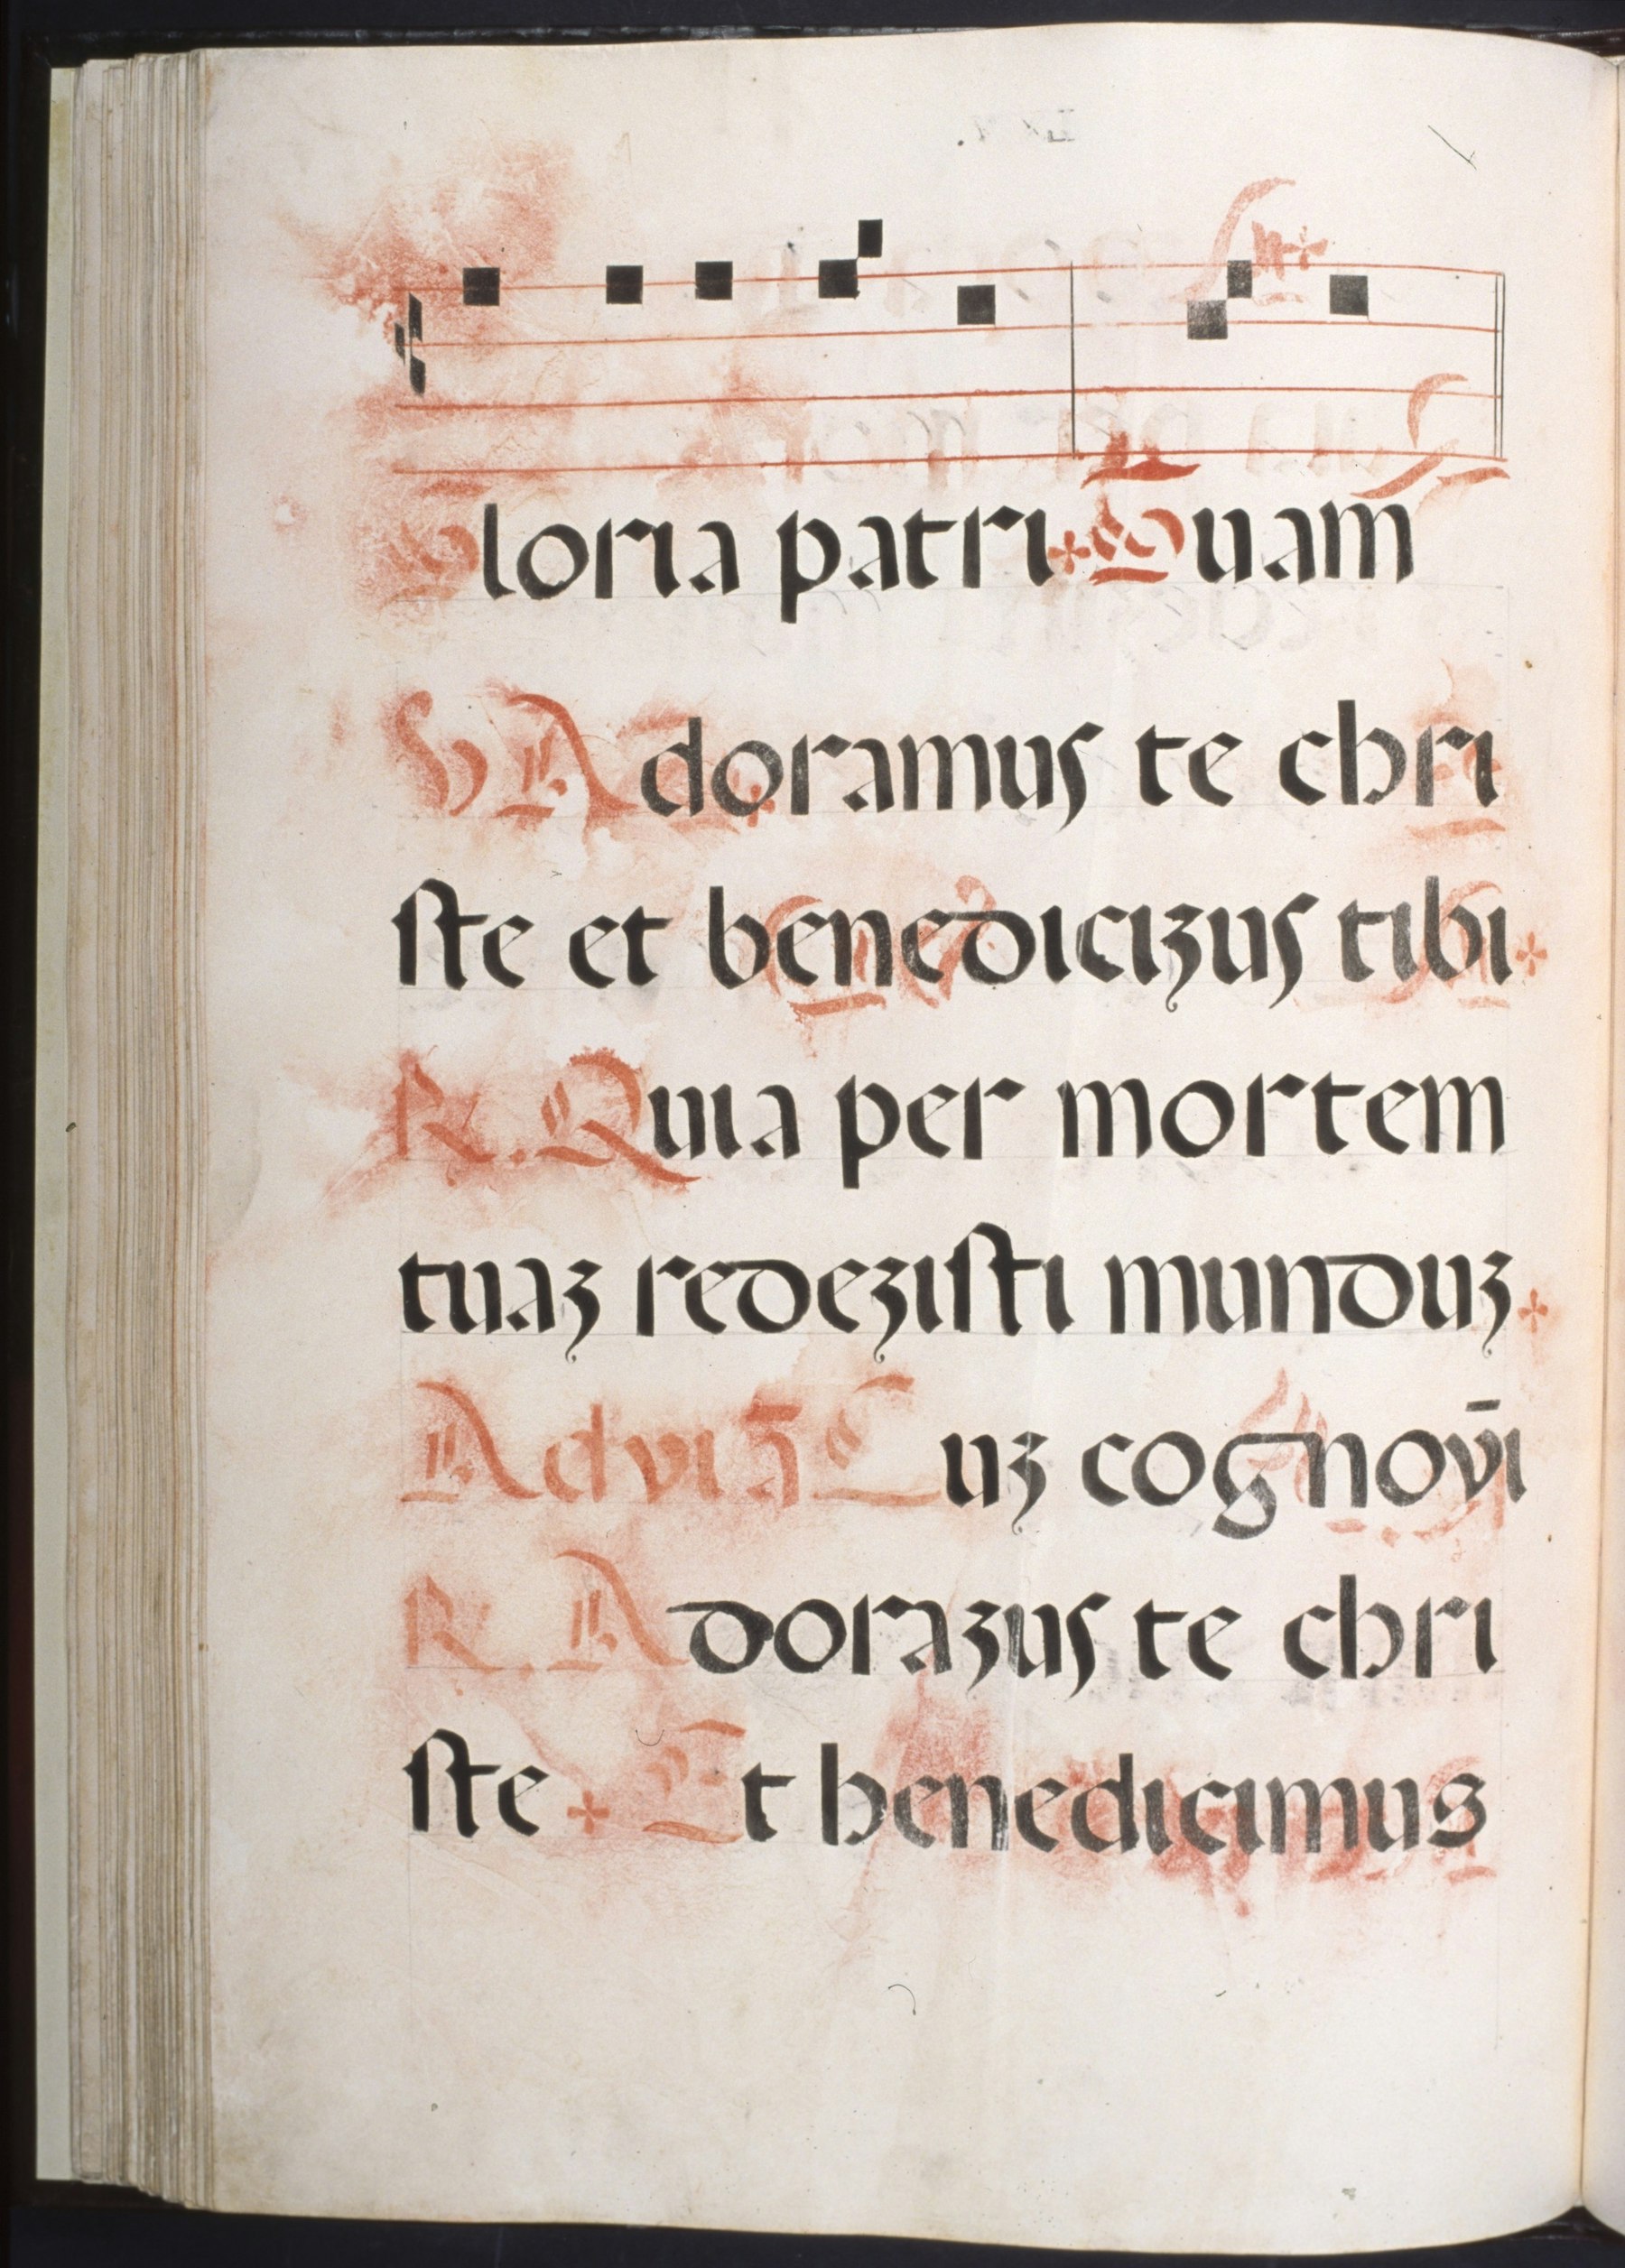 Gloria patri Quam
V Adoramus te chri
ste et benediciꝫus tibi
R. Quia per mortem
tuaꝫ redeꝫisti munduꝫ
Ad viꝫ Cuꝫ cognoṽi
R. Adoraꝫus te chri
ste Et benedicimus